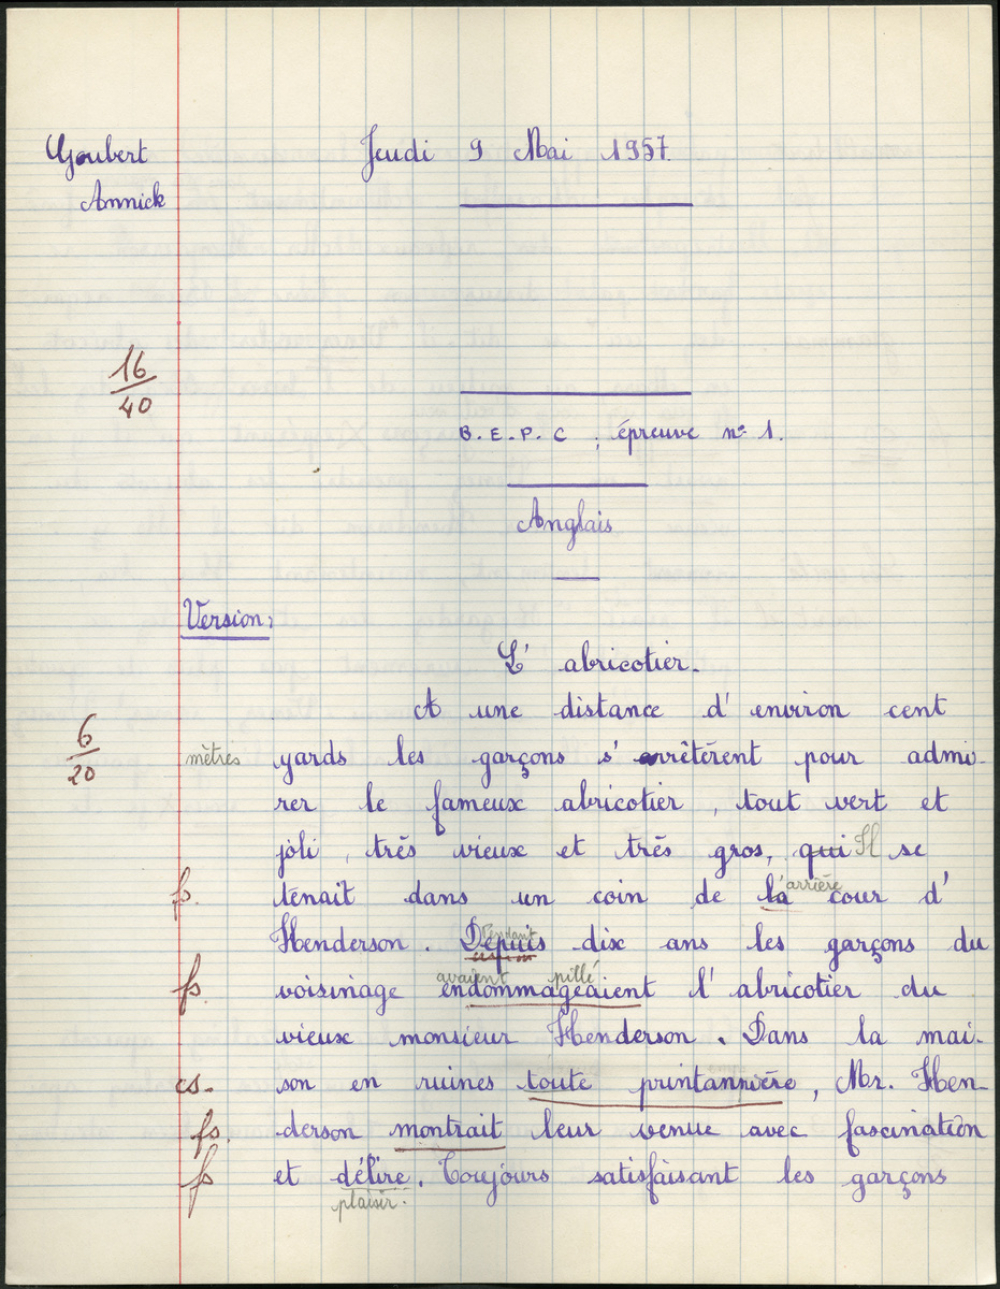 Goubert
Jeudi 9 Mai 1957.
Annick
16
40
B.E.P.C ; épreuve n° 1.
Anglais
Version :
L' abricotier.
A une distance d' environ cent
6
20
mètres
yards les garçons s' arrêtèrent pour admi-
rer le fameux abricotier, tout vert et
joli, très vieux et très gros, qui Il se
fs.
tenait dans un coin de la l'arrière cour d'
Henderson. Depuis Pendant dix ans les garçons du
avaient pillé
fs.
voisinage endommageaient l' abricotier du
vieux monsieur Henderson. Dans la mai-
cs.
son en ruines toute printannière, Mr. Hen-
fs.
derson montrait leur venue avec fascination
fs
et délire. Toujours satisfaisant les garçons
plaisir.